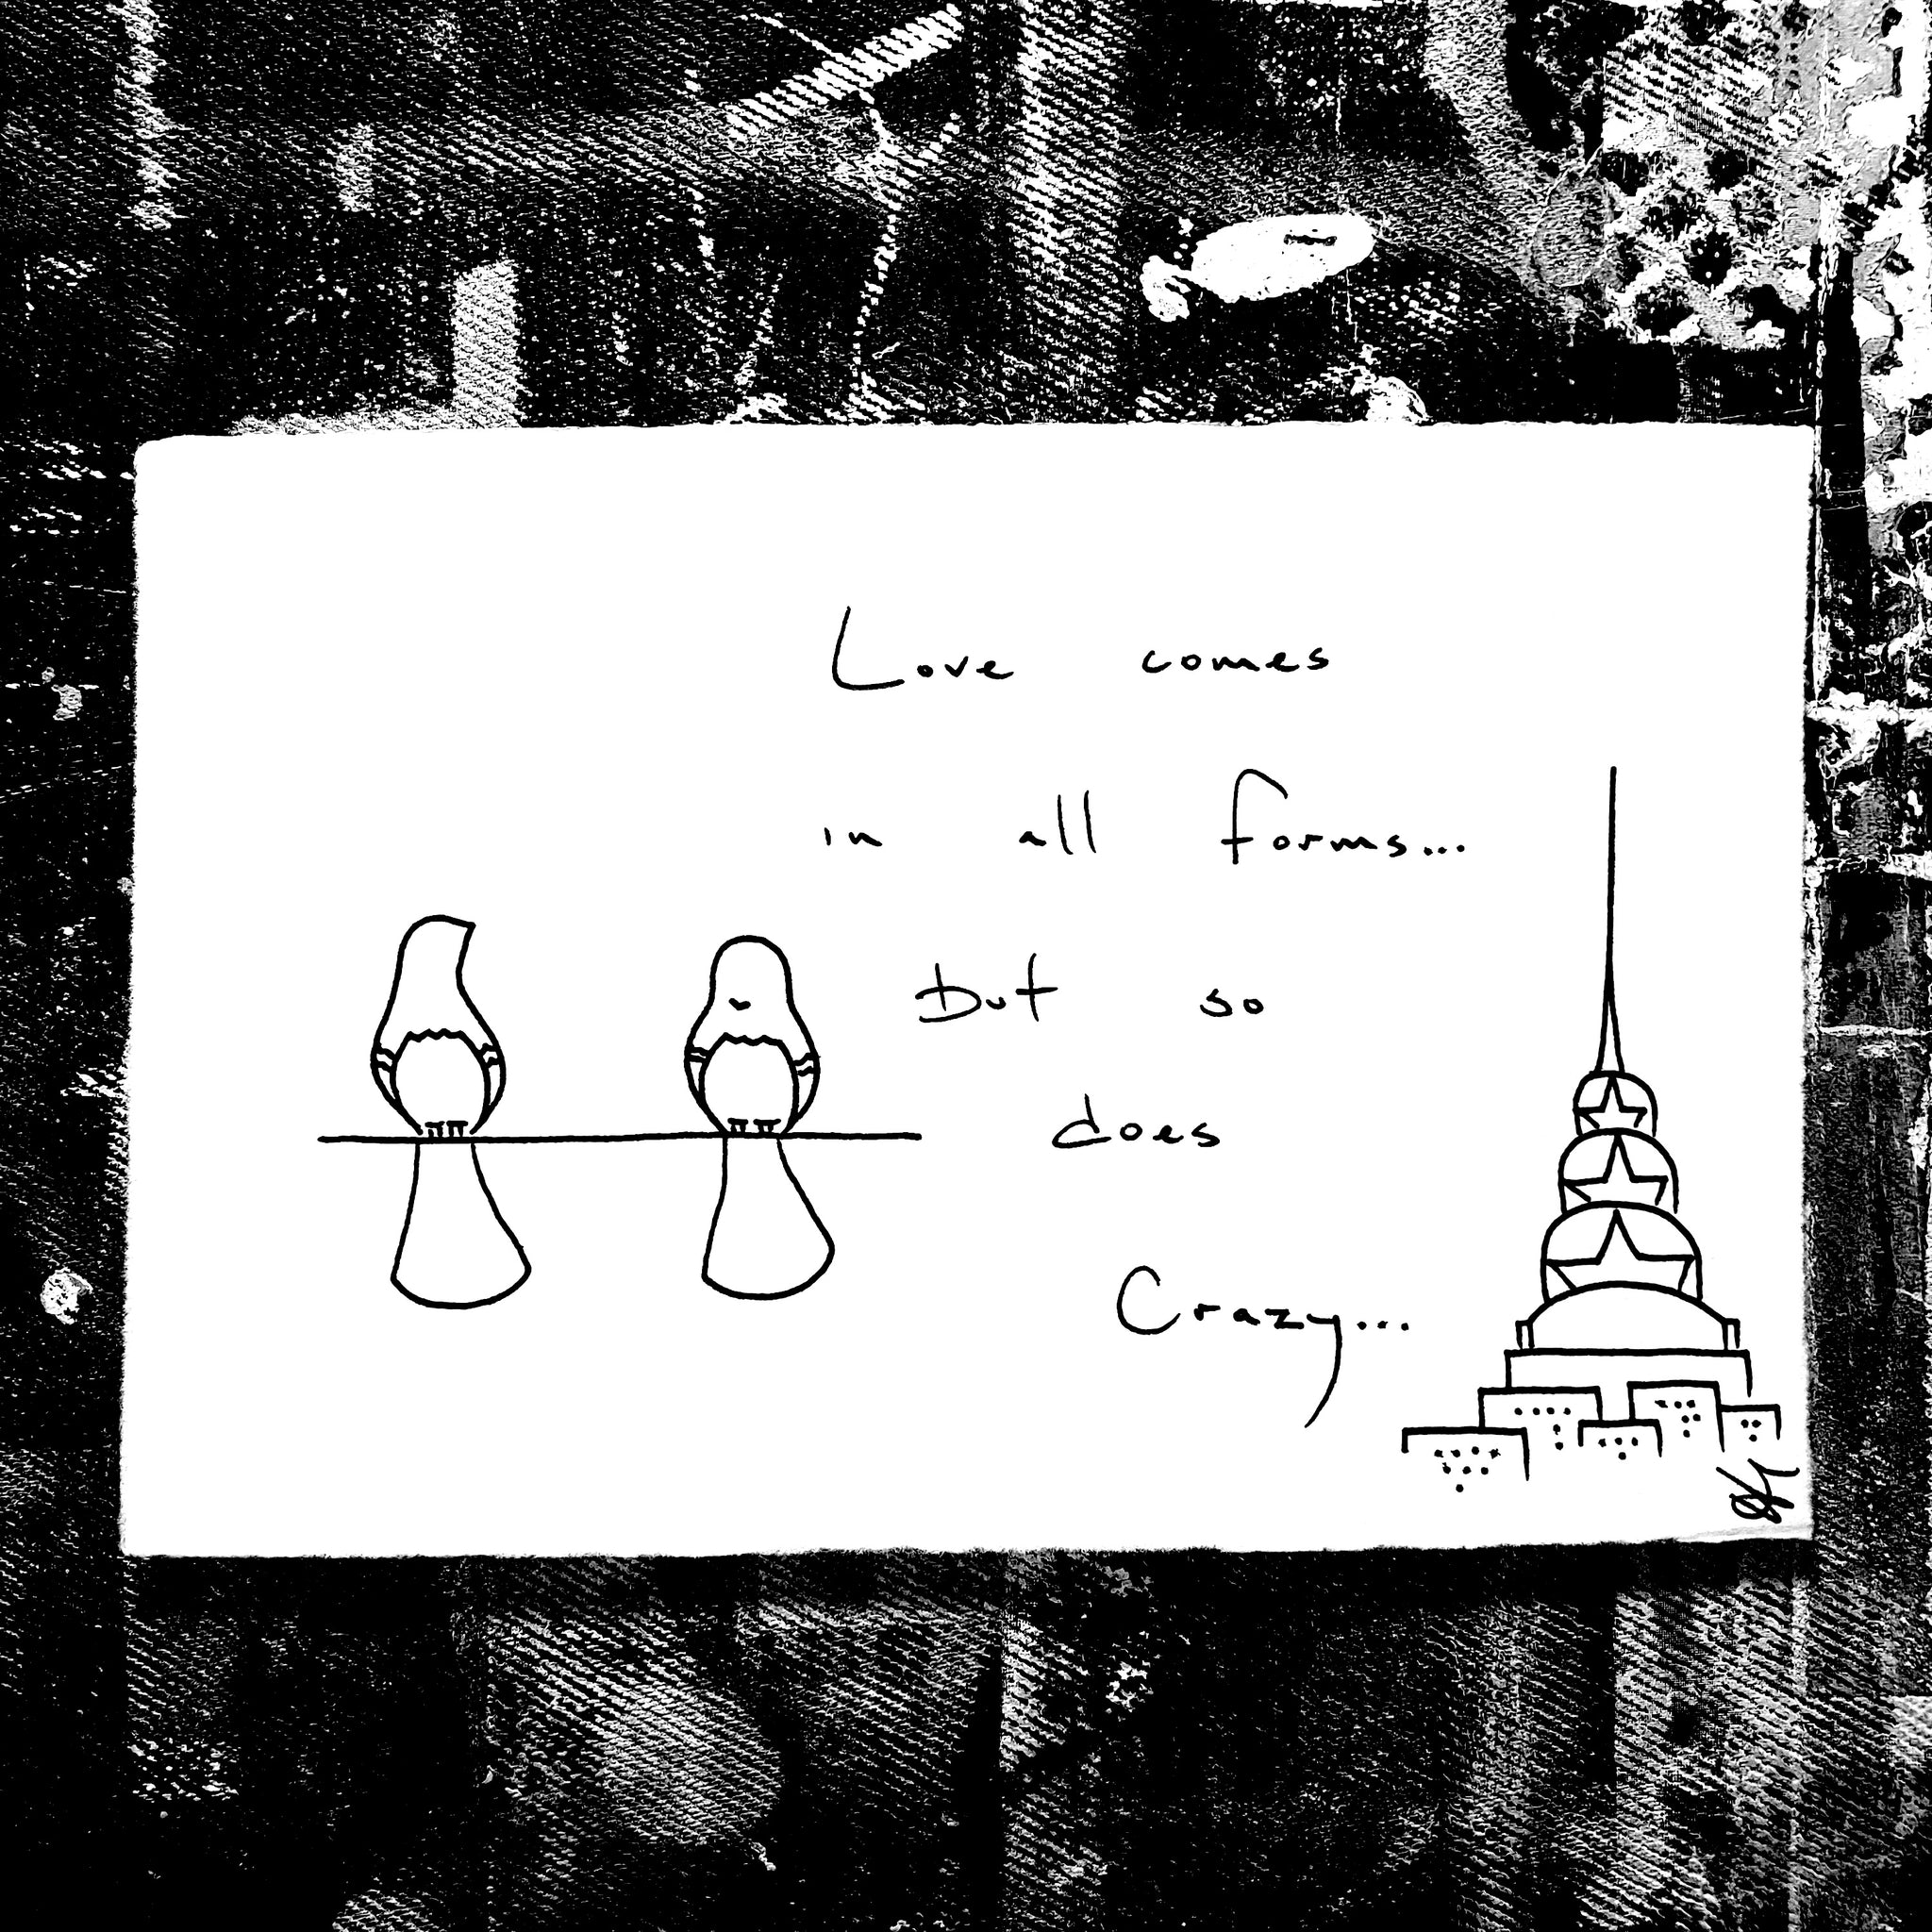 Love comes
in all forms...
but so
does
Crazy...